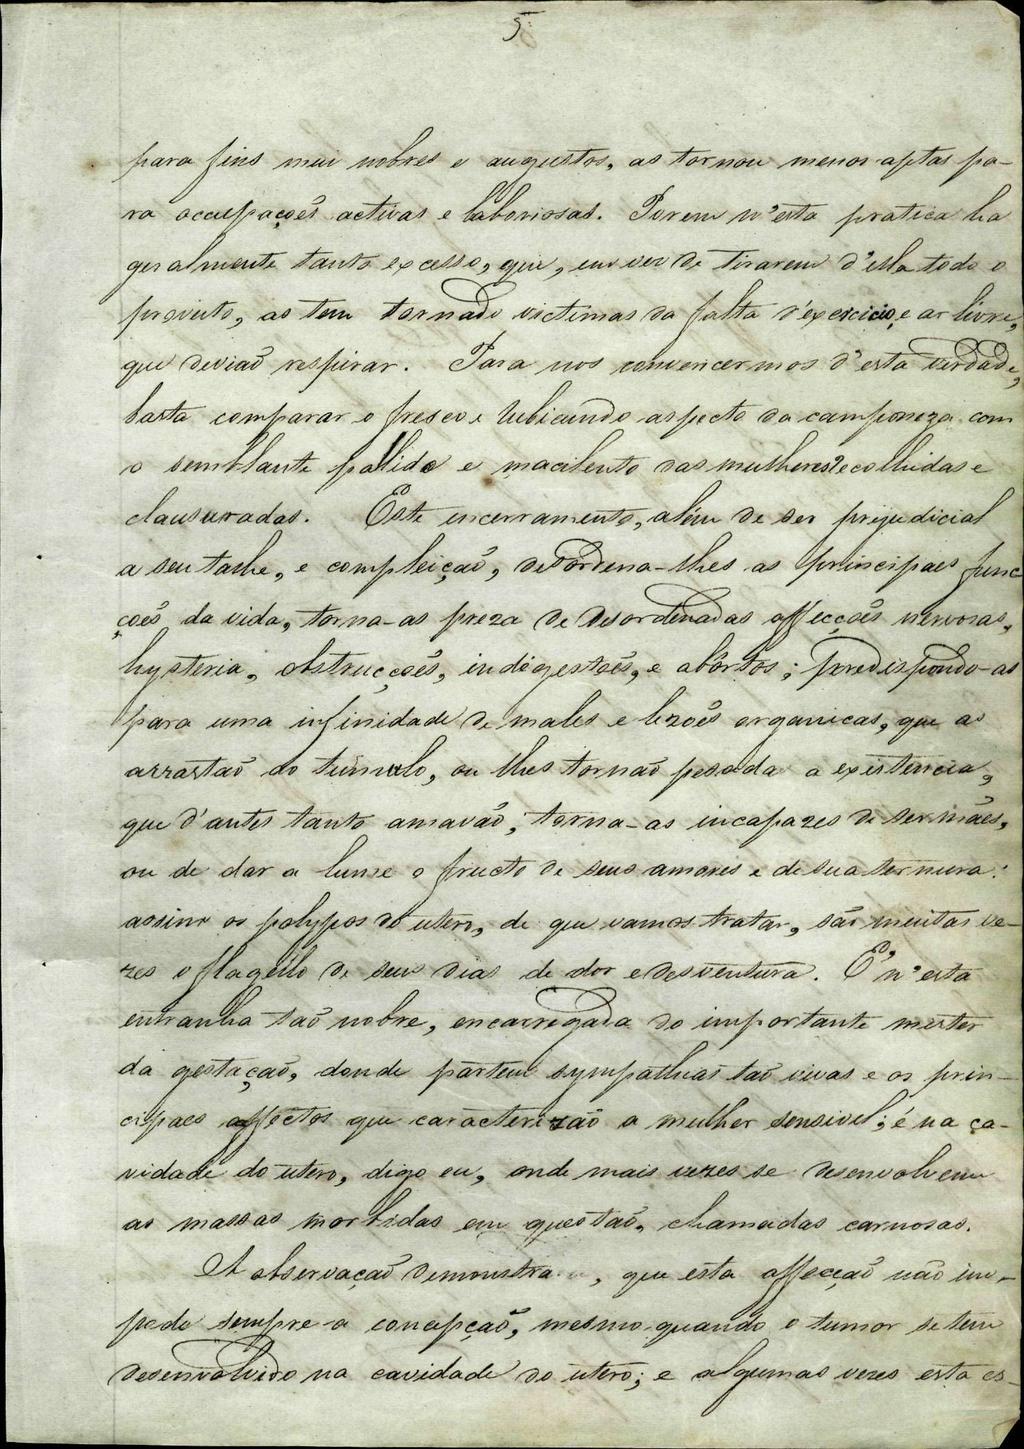 5
para fins mui nobres e augustos, as tornou menos aptas pa-
ra occupações activas e laboriosas. Porem n'esta pratica ha
geralmente tanto excesso, que, em vez de tirarem d'ella todo o
proveito, as tem tornado victimas da falta d'exercicio, e ar livre,
que deviaõ respirar. Para nos convencermos d'esta verdade,
basta comparar o fresco e rubicundo aspecto da camponeza com
o semblante pallido e macilento das mulheres recolhidas e
clausuradas. Este encerramento, alem de ser prejudicial
a seu talhe, e compleiçaõ, desordena-lhes as principaes func
çoẽs da vida, torna-as preza de desordenadas affecçoẽs nervosas,
hysteria, obstrucçoẽs, indigestoẽs, e abôrtos; predispondo-as
para uma infinidade de males e lezoẽs organicas, que as
arrastaõ ao tumulo, ou lhes tornaõ pesada a existencia,
que d'antes tanto amavão, torna-as incapazes de ser mães,
ou de dar a lume o fructo de seus amores e de sua ternura:
assim os polypos do utero, de que vamos tratar, são muitas ve-
zes o flagello de seus dias de dor e desventura. É n'esta
entranha taõ nobre, encarregada do importante mister
da gestaçaõ, donde partem sympathias taõ vivas e os prin-
cipaes affectos que caracterizão a mulher sensivel; é na ca-
vidade do utero, digo eu, onde mais vezes se desenvolvem
as massas morbidas em questaõ, chamadas carnosas.
A observaçaõ demonstra, que esta affecçaõ não im-
pede sempre a concepçaõ, mesmo quando o tumor se tem
desenvolvido na cavidade do utero; e algumas vezes esta es-